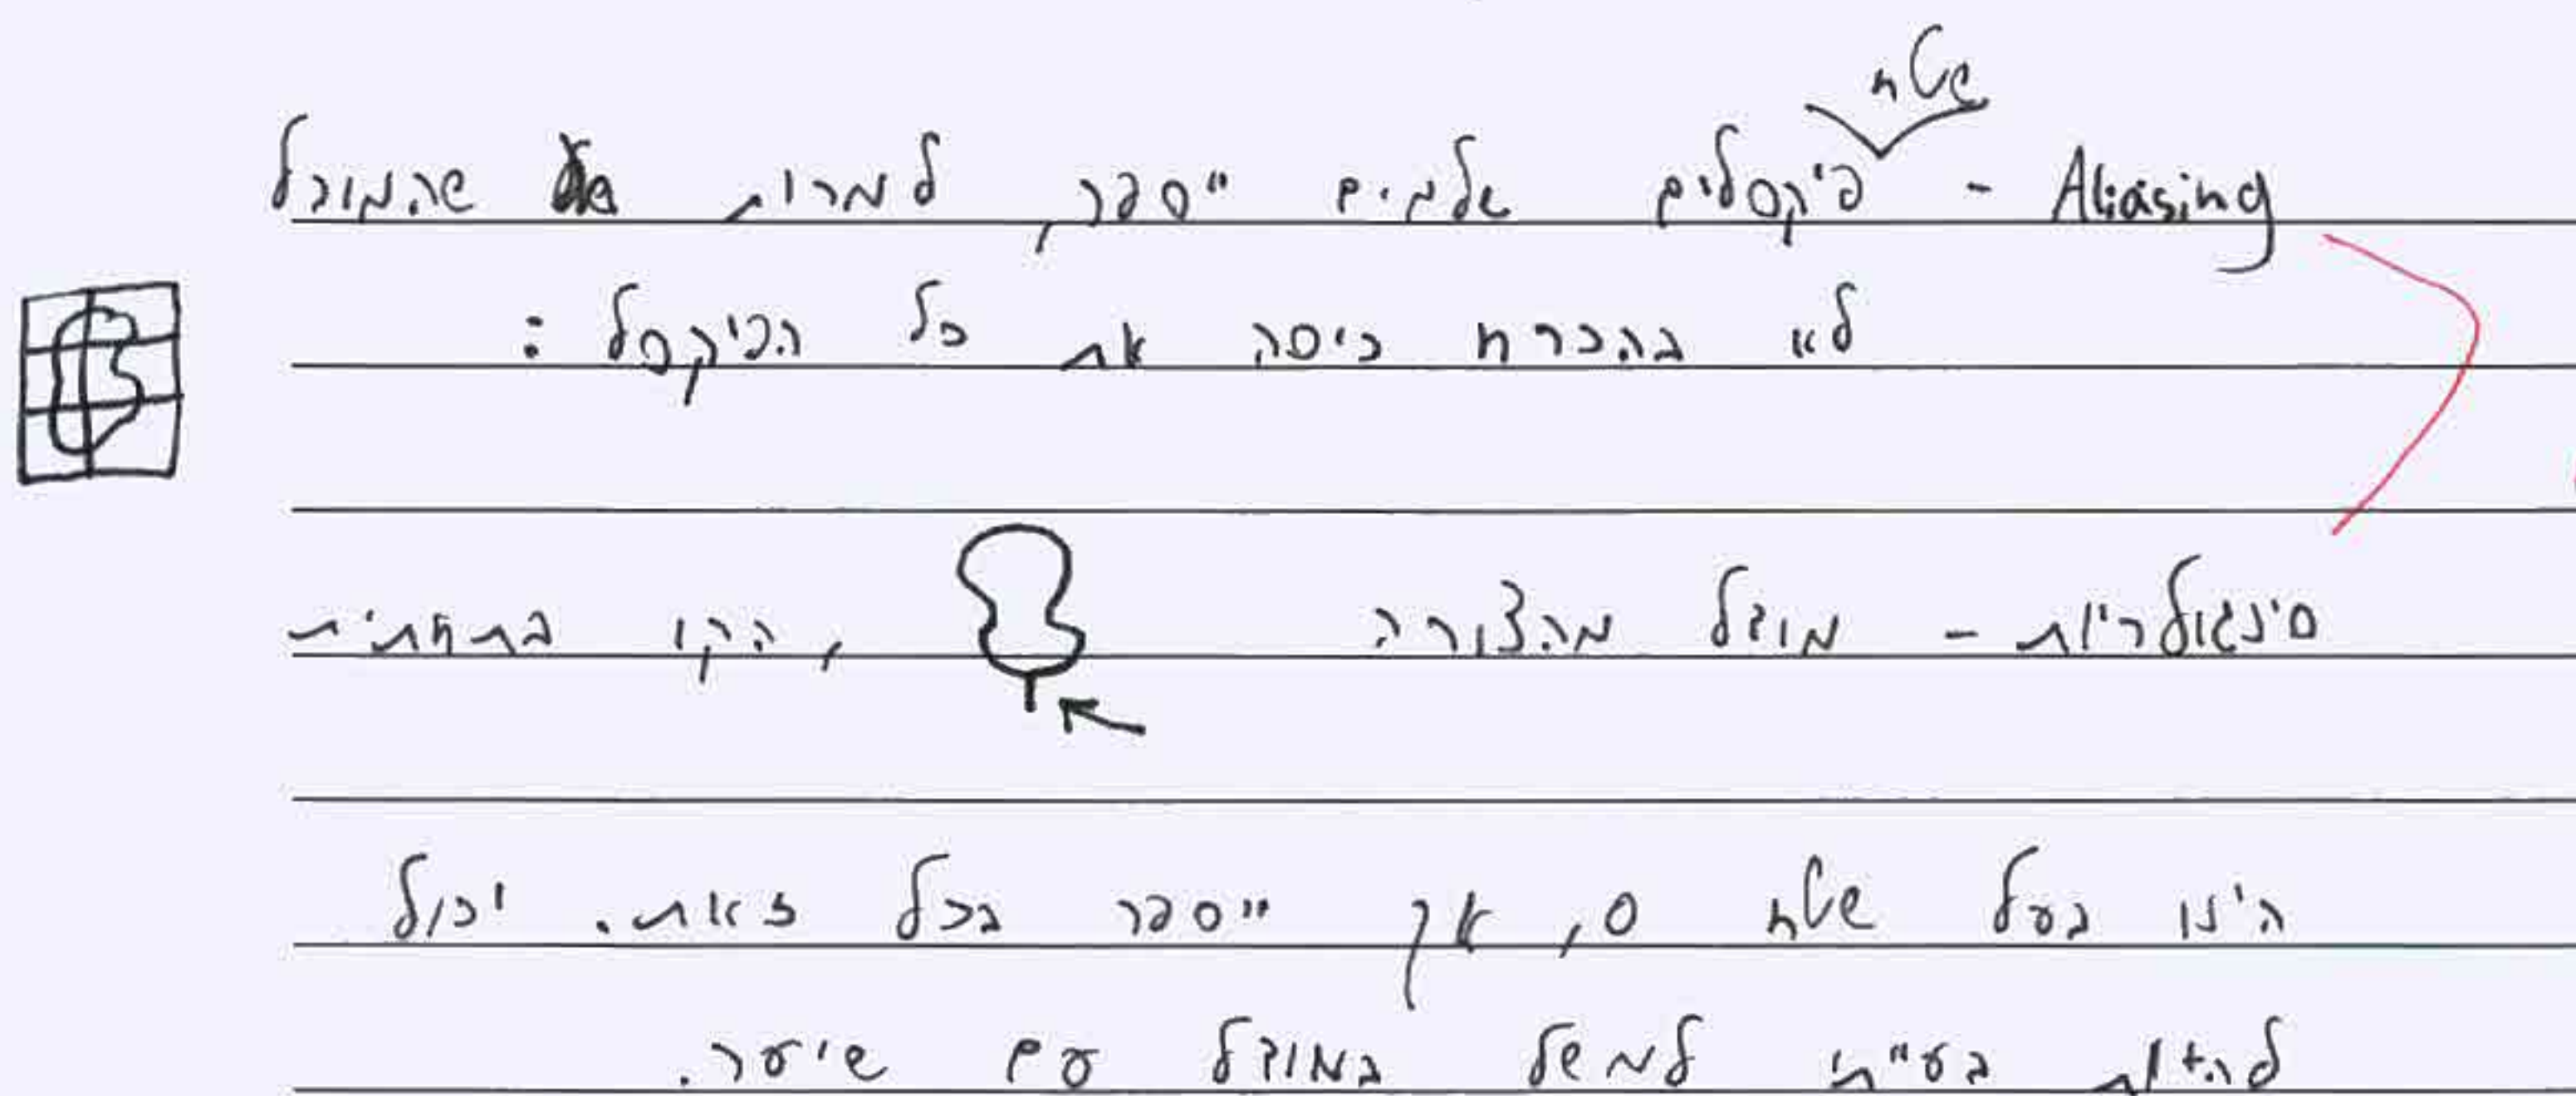 שטח
Aliasing - פיקסלים שלמים ייספר, למרות שהמודל
לא בהכרח כיסה את כל הפיקסל:
סינגולריות - מודל מהצורה , הקו בתחתית
הינו בעל שטח 0, אך ייספר בכל זאת. יכול
להיות בעייתי למשל במודל עם שיער.